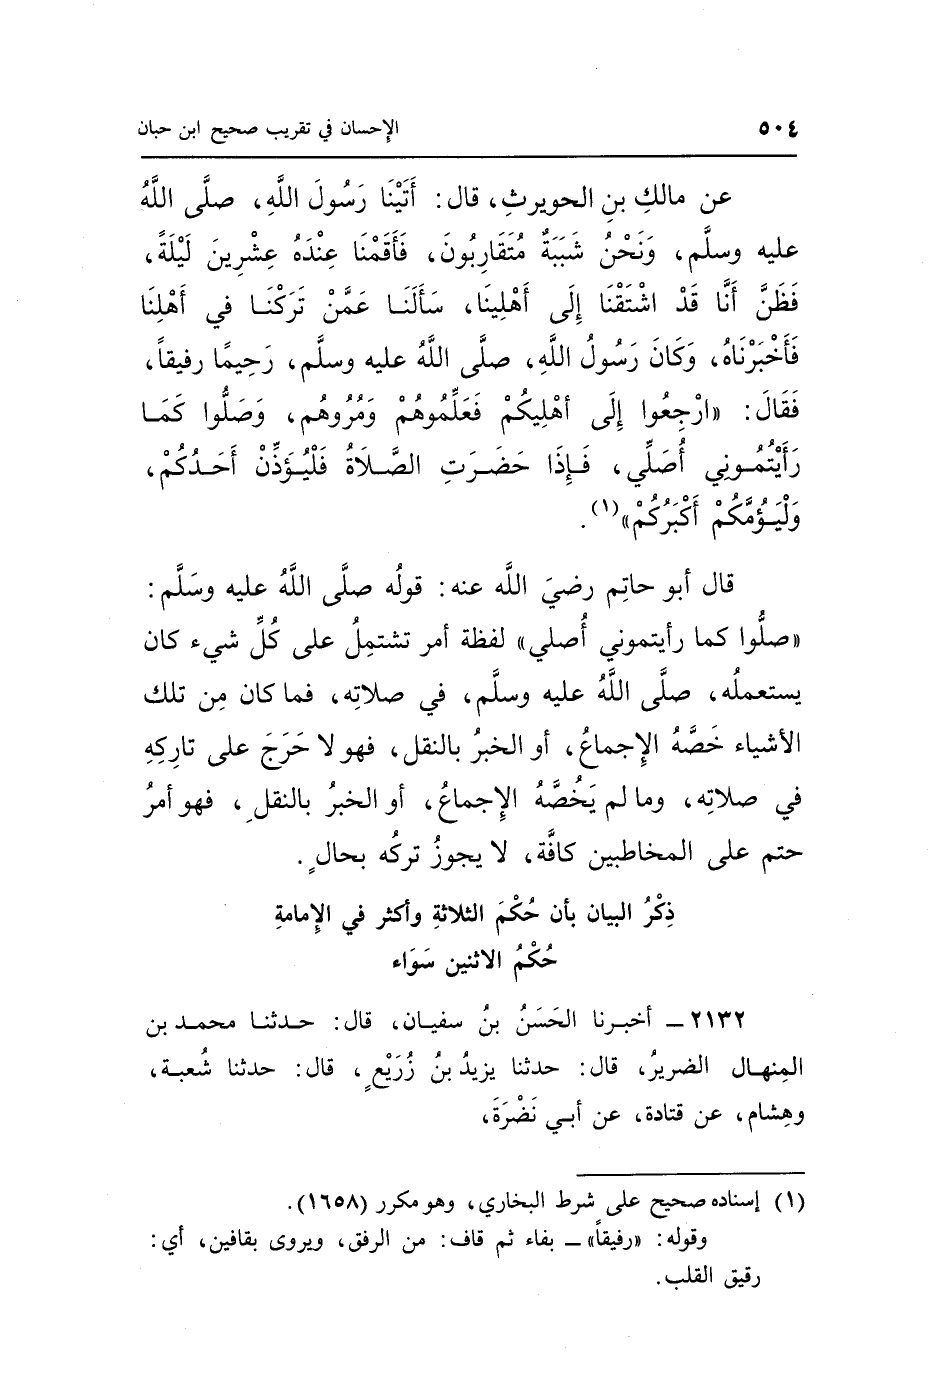 ٥٠٤ الإحسان في تقريب صحيح ابن حبان
عن مالكِ بنِ الحويرثِ، قال: أَتَيْنَا رَسُولَ اللَّهِ، صلَّى اللَّهُ
عليه وسلَّم، وَنَحْنُ شَبَبَةٌ مُتَقَارِبُونَ، فَأَقَمْنَا عِنْدَهُ عِشْرِينَ لَيْلَةً،
فَظَنَّ أَنَّا قَدْ اشْتَقْنَا إِلَى أَهْلِينَا، سَأَلَنَا عَمَّنْ تَرَكْنَا في أَهْلِنَا
فَأَخْبَرْنَاهُ، وَكَانَ رَسُولُ اللَّهِ، صلَّى اللَّهُ عليه وسلَّم، رَحِيمًا رفيقاً،
فَقَالَ: «ارْجِعُوا إِلَى أهْلِيكُمْ فَعَلِّمُوهُمْ وَمُرُوهُم، وَصَلُّوا كَمَا
رَأَيْتُمُونِي أُصَلِّي، فَإِذَا حَضَرَتِ الصَّلَاةُ فَلْيُؤَذِّنْ أَحَدُكُمْ،
وَلْيَؤُمَّكُمْ أَكْبَرُكُمْ»(١).
قال أبو حاتِم رضيَ اللَّه عنه: قولُه صلَّى اللَّهُ عليه وسَلَّم:
«صلُّوا كما رأيتموني أُصلي» لفظة أمر تشتمِلُ على كُلِّ شيء كان
يستعملُه، صلَّى اللَّهُ عليه وسلَّم، في صلاتِه، فما كان مِن تلك
الأشياء خَصَّهُ الإِجماعُ، أو الخبرُ بالنقل، فهو لا حَرَجَ على تارِكِهِ
في صلاتِه، وما لم يَخُصَّهُ الإِجماعُ، أو الخبرُ بالنقلِ، فهو أمرُ
حتم على المخاطبين كافَّة، لا يجوزُ تركُه بحالٍ.
ذِكْرُ البيان بأن حُكْمَ الثلاثةِ وأكثر في الإِمامةِ
حُكْمُ الاثنين سَوَاء
٢١٣٢ ـ أخبرنا الحَسَنُ بنُ سفيان، قال: حدثنا محمد بن
المِنهال الضريرُ، قال: حدثنا يزيدُ بنُ زُرَيْعٍ، قال: حدثنا شُعبة،
وهِشام، عن قتادة، عن أبي نَضْرَةَ،
(١) إسناده صحيح على شرط البخاري، وهو مكرر (١٦٥٨).
وقوله: «رفيقاً» ـ بفاء ثم قاف: من الرفق، ويروى بقافين، أي:
رقيق القلب.